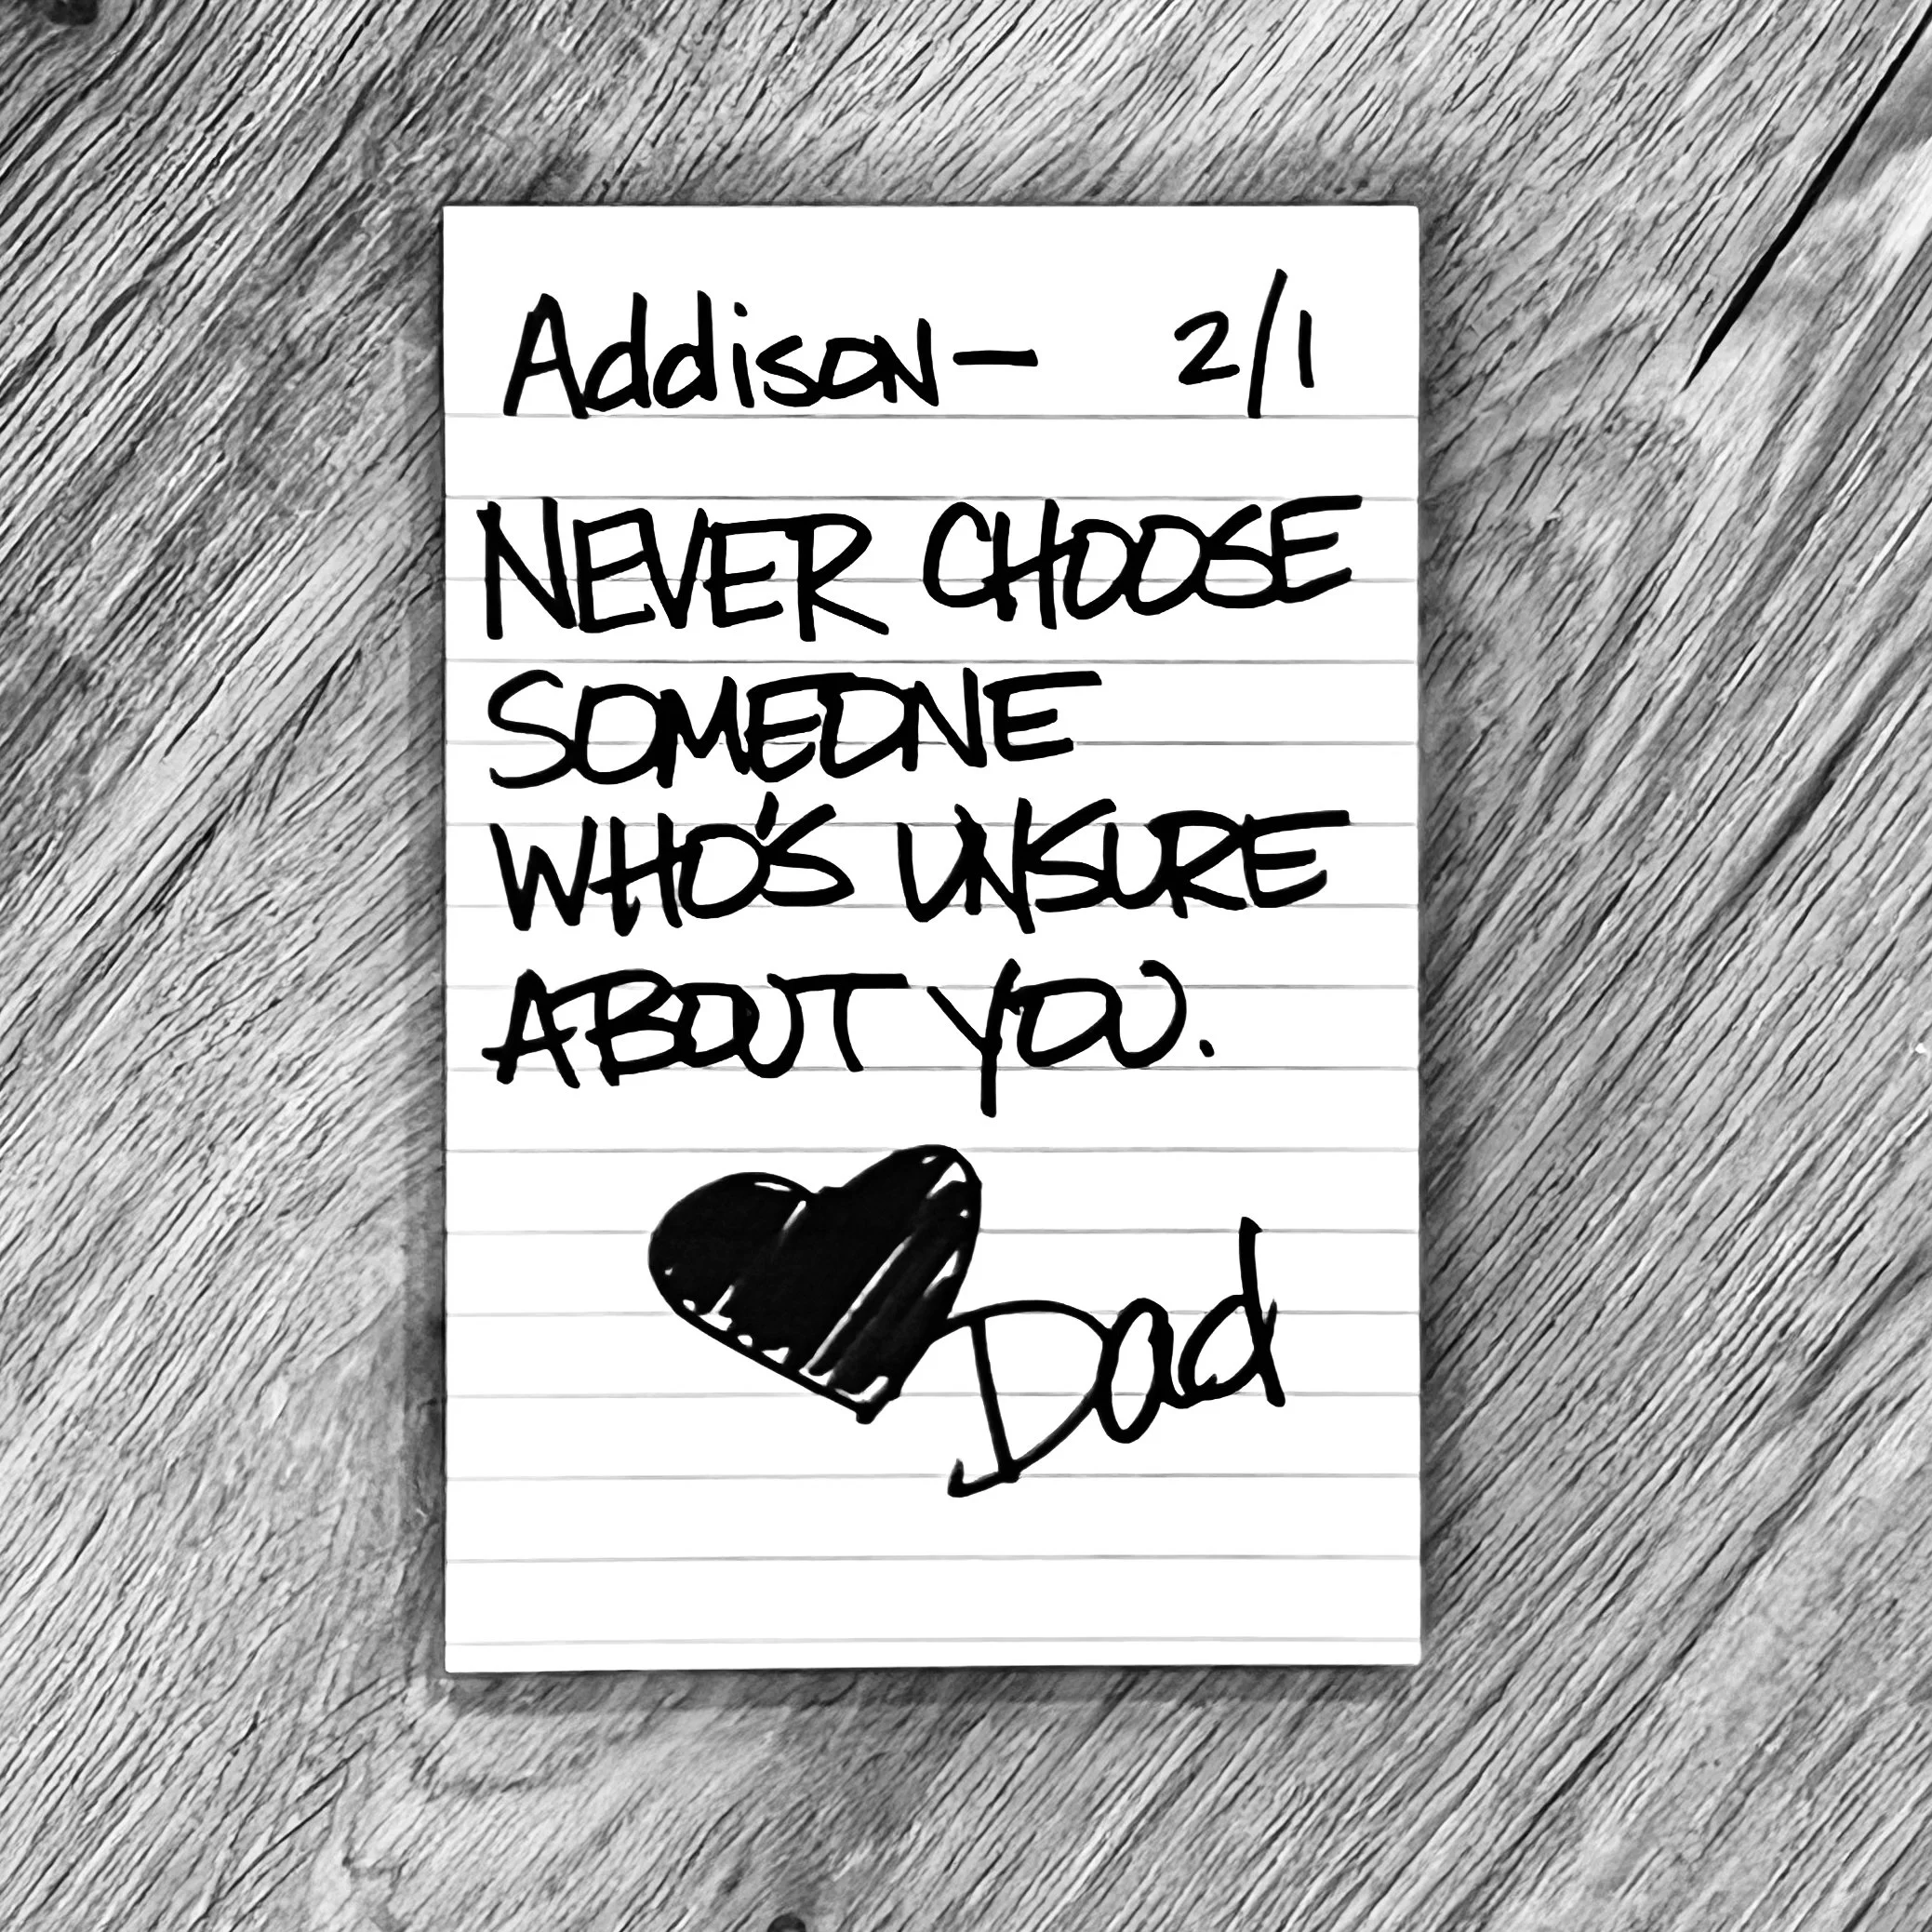 Addison— 2/1
NEVER CHOOSE
SOMEONE
WHO'S UNSURE
ABOUT YOU.
Dad